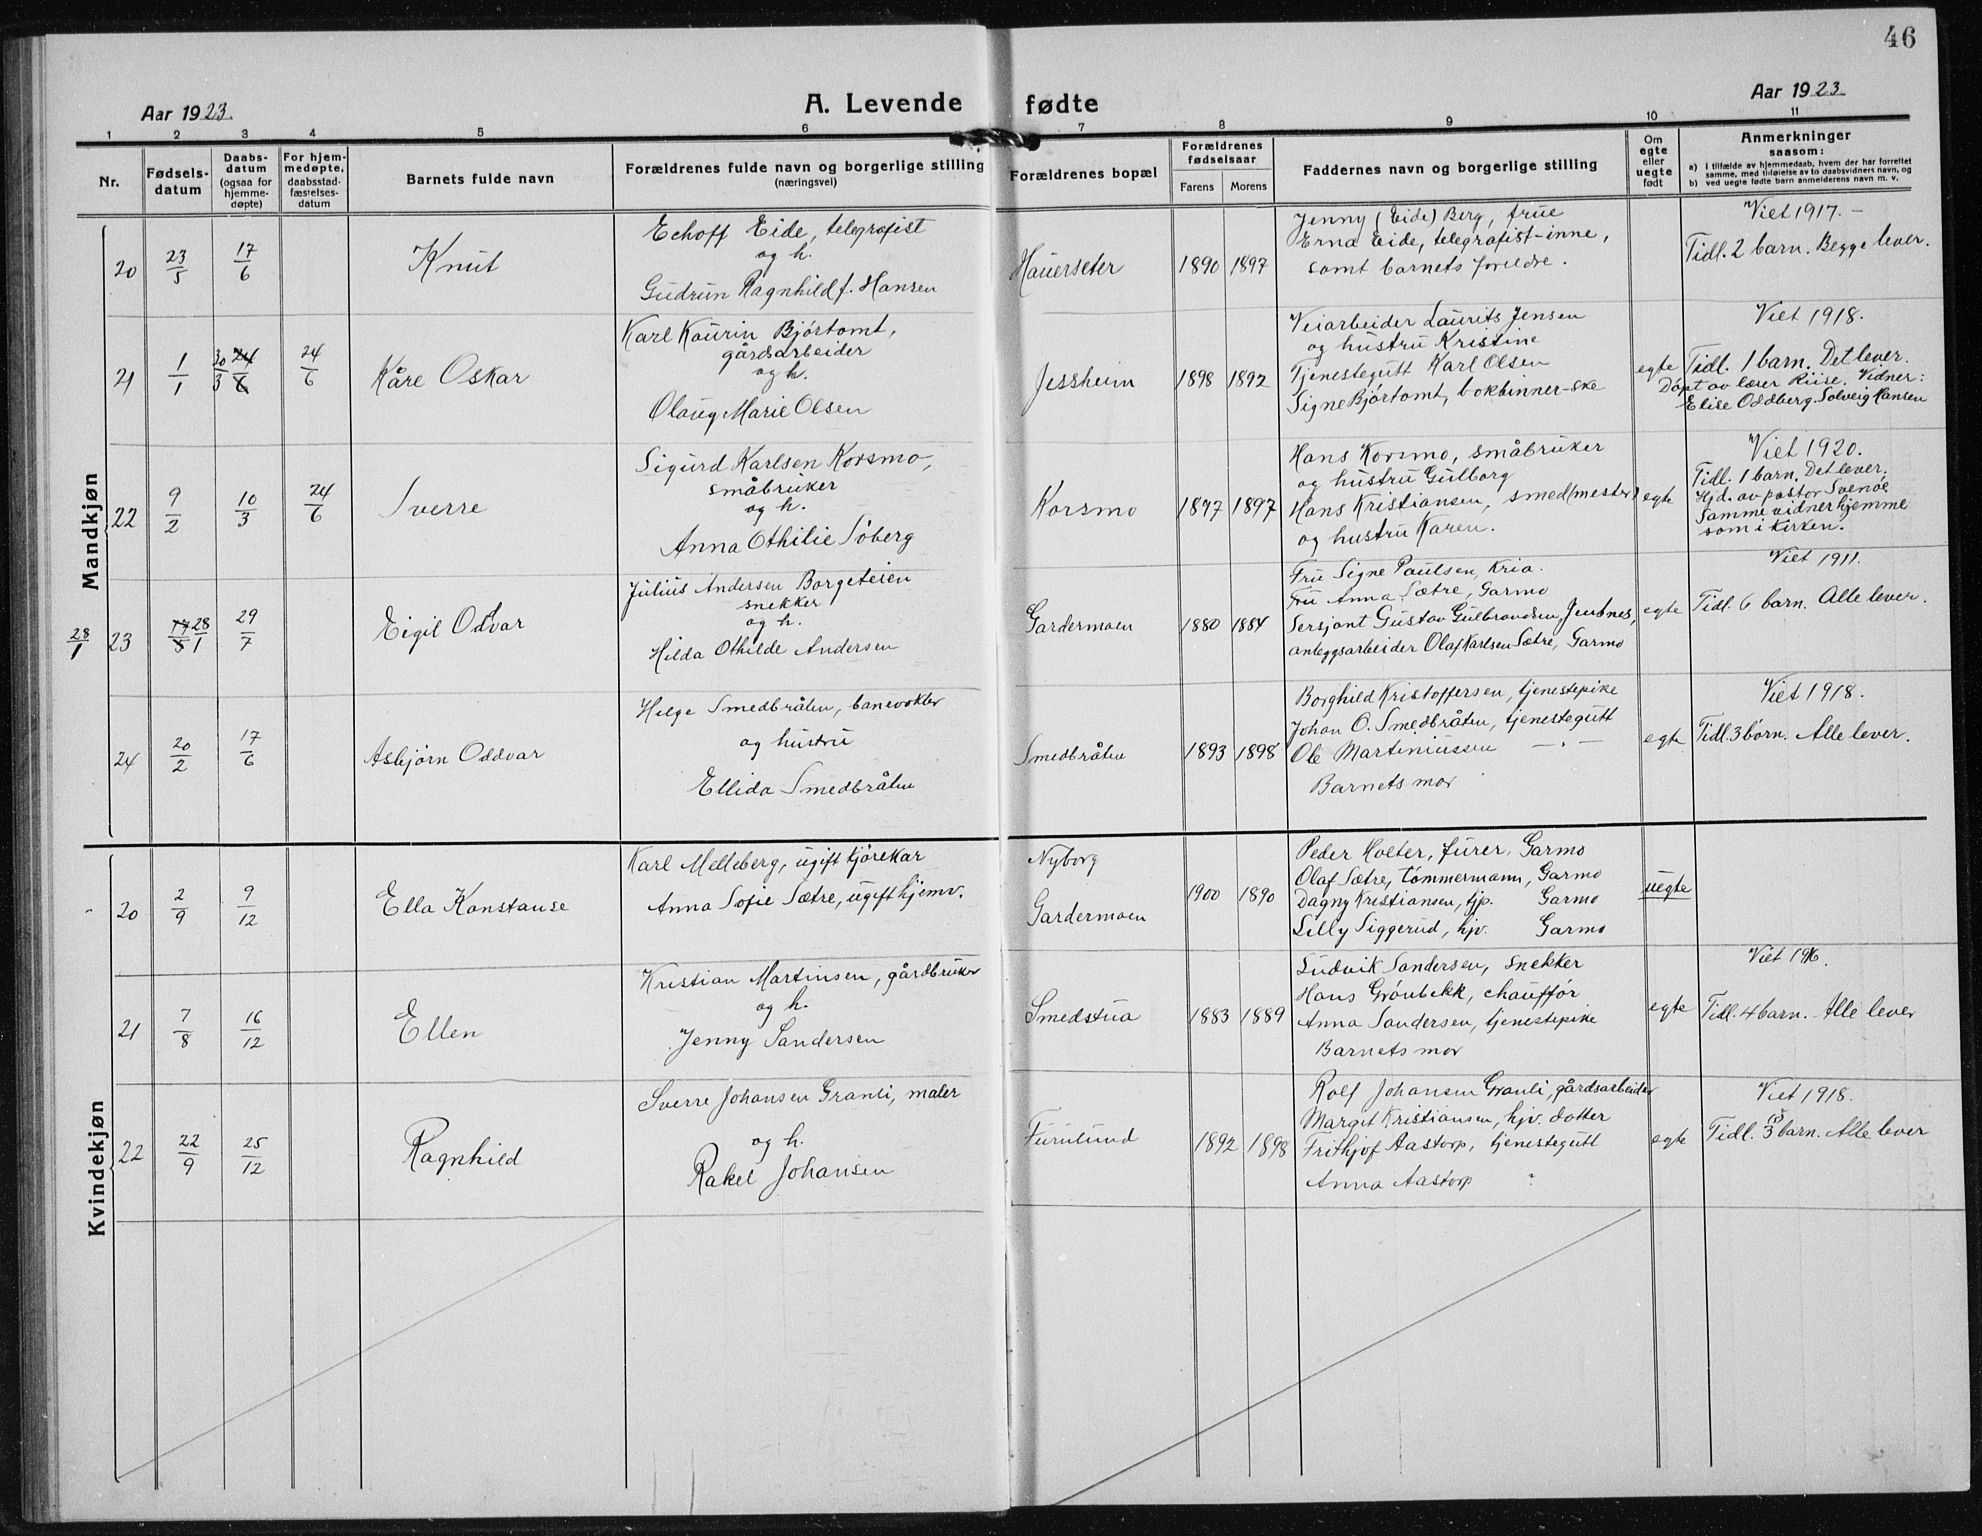 46
Aar 1923.
A. Levende fødte
Aar 1923.
1 2 3 4 5 6 7 8 9 10 11
Nr.
Fødsels-
datum
Daabs-
datum
(ogsaa for
hjemme-
døpte)
For hjem-
medøpte,
daabsstad-
fæstelses-
datum
Barnets fulde navn
Forældrenes fulde navn og borgerlige stilling
(næringsvei)
Forældrenes bopæl
Forældrenes
fødselsaar
Farens Morens
Faddernes navn og borgerlige stilling
Om
egte
eller
uegte
født
Anmerkninger
saasom:
a) I tilfælde av hjemmedaab, hvem der har forrettet
samme, med tilføielse av to daabsvidners navn, og
b) ved uegte fødte barn anmelderens navn m. v.
Mandkjøn
20
23/5
17/6
Knut
Echoff Eide, telegrafist
og h.
Gudrun Ragnhild f. Hansen
Hauerseter
1890 1897
Jenny (Eide) Berg, frue
Erna Eide, telegrafist-inne,
samt barnets foreldre.
Viet 1917. -
Tidl. 2 barn. Begge lever.
21
1/1
30/3 24/6
24/6
Kåre Oskar
Karl Kaurin Bjørtomt,
gårdsarbeider
og h.
Olaug Marie Olsen
Jessheim
1898 1892
Veiarbeider Laurits Jensen
og hustru Kristine
Tjenestegutt Karl Olsen
Signe Bjørtomt, bokbinner-ske
egte
Viet 1918.
Tidl. 1 barn. Det lever.
Døpt av lærer Riise. Vidner:
Elise Oddberg. Solveig Hansen
22
9/2
10/3
24/6
Sverre
Sigurd Karlsen Korsmo,
småbruker
og h.
Anna Othilie Søberg
Korsmo
1897 1897
Hans Korsmo, småbruker
og hustru Gulborg
Hans Kristiansen, smed(mester)
og hustru Karen.
egte
Viet 1920.
Tidl. 1 barn. Det lever.
Hjd. av pastor Svenøe
Samme vidner hjemme
som i kirken.
28/1
23
28/1
29/7
Eigil Odvar
Julius Andersen Borgeteien
snekker
og h.
Hilda Othilde Andersen
Gardermoen
1880 1884
Fru Signe Paulsen, Kria.
Fru Anna Sætre, Garmo
Sersjant Gustav Gulbrandsen Jentnes,
anleggsarbeider Olaf Karlsen Sætre, Garmo
egte
Viet 1911.
Tidl. 6 barn. Alle lever.
24
20/2
17/6
Asbjørn Oddvar
Helge Smedbråten, banevokter
og hustru
Ellida Smedbråten
Smedbråten
1893 1898
Borghild Kristoffersen, tjenestepike
Johan O. Smedbråten, tjenestegutt
Ole Martiniussen - " -
Barnets mor
egte
Viet 1918.
Tidl. 3 børn. Alle lever.
Kvindekjøn
20
2/9
9/12
Ella Konstanse
Karl Melleberg, ugift kjørekar
Anna Sofie Sætre, ugift hjemv.
Nyborg
Gardermoen
1900 1890
Peder Holter, furer, Garmo
Olaf Sætre, tømmermann, Garmo
Dagny Kristiansen, tjp. Garmo
Lilly Siggerud, hjv. Garmo
uegte
21
7/8
16/12
Ellen
Kristian Martinsen, gårdbruker
og h.
Jenny Sandersen
Smedstua
1883 1889
Ludvik Sandersen, snekker
Hans Grønbekk, chauffør
Anna Sandersen, tjenestepike
Barnets mor
egte
Viet 1916.
Tidl. 4 barn. Alle lever
22
22/9
25/12
Ragnhild
Sverre Johansen Granli, maler
og h.
Rakel Johansen
Furulund
1892 1898
Rolf Johansen Granli, gårdsarbeider
Margit Kristiansen, hjv. datter
Frithjof Aastorp, tjenestegutt
Anna Aastorp "
egte
Viet 1918.
Tidl. 3 barn. Alle lever